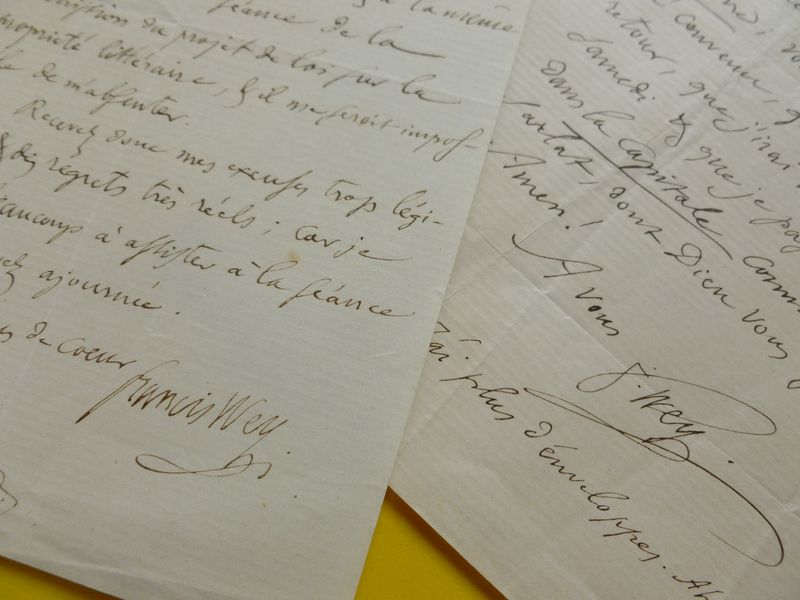 à la même
séance de la
du projet de loi sur la
propriété littéraire, & il me seroit impos-
de m'absenter.
Recevez donc mes excuses trop légi-
& des regrets très réels; car je
beaucoup à assister à la séance
ajournée.
de coeur
Francis Wey.
convenu,
retour, que j'irai
Samedi & que je
dans la Capitale
dont Dieu vous
Amen!
A vous
F. Wey.
J'ai plus d'enveloppes. Ah